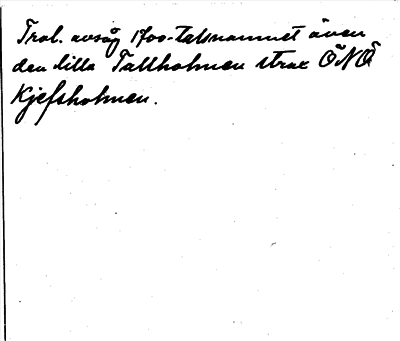 Trol. avsåg 1700-talsnamnet även
den lilla Tallholmen strax ÖNÖ
Kjefsholmen.